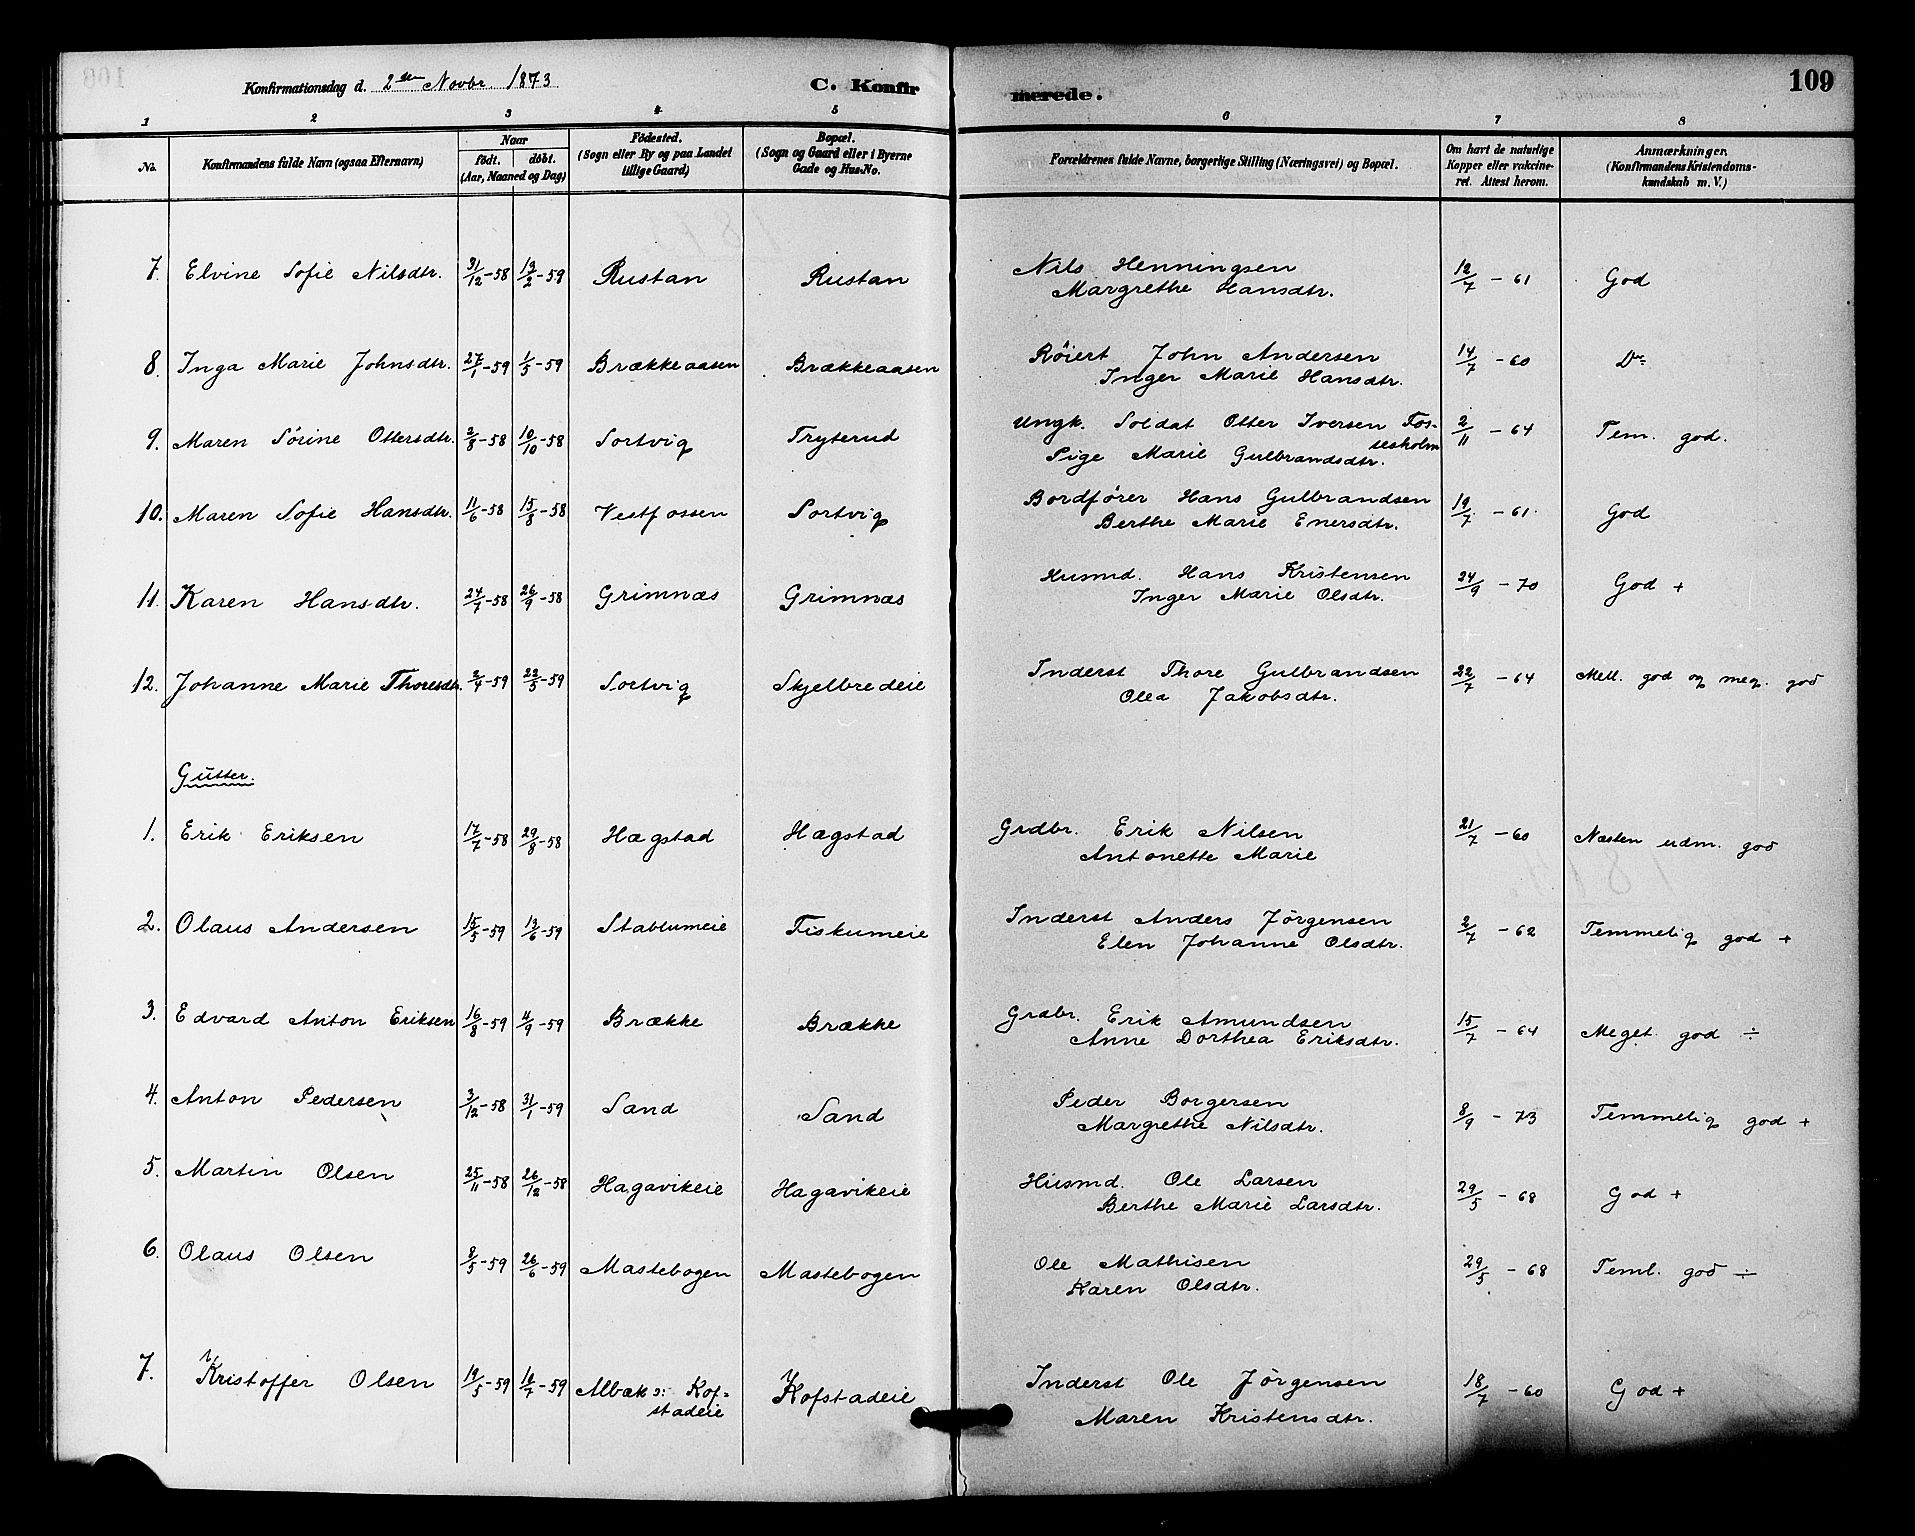 Konfirmationsdag d. 2den Novbr. 1873 C. Konfirmerede. 109
1 2 3 4 5 6 7 8
No. Konfirmandens fulde Navn (ogsaa Efternavn) Naar født. døbt. (Aar, Maaned og Dag) Fødested. (Sogn eller By og paa Landet tillige Gaard) Bopæl. (Sogn og Gaard eller i Byerne Gade og Hus-No. Forældrenes fulde Navne, borgerlige Stilling (Næringsvei) og Bopæl. Om havt de naturlige Kopper eller vakcineret. Attest herom. Anmærkninger. (Konfirmandens Kristendomskundskab m. V.)
7. Elvine Sofie Nilsdtr. 31/12-58 13/2-59 Rustan Rustan Nils Henningsen 12/7 - 61 God
Margrethe Hansdtr.
8. Inga Marie Johnsdtr. 27/1-59 1/5-59 Brækkeaasen Brækkeaasen Røiert John Andersen 14/7 - 60 Do
Inger Marie Hansdtr.
9. Maren Sørine Ottersdtr. 2/8-58 10/10-58 Sortvig Tryterud Ungk. Soldat Otter Iversen Fossesholm 2/11 - 64 Tem. god.
Pige Marie Gulbrandsdtr.
10. Maren Sofie Hansdtr. 11/6-58 15/8-58 Vestfossen Sortvig Bordfører Hans Gulbrandsen 19/7 - 61. God
Berthe Marie Enersdtr.
11. Karen Hansdtr. 24/7-58 26/9-58 Grimnæs Grimnæs Husmd. Hans Kristensen 24/9 - 70 God +
Inger Marie Olsdtr.
12. Johanne Marie Thoresdtr. 2/4-59 22/5-59 Sortvig Skjelbredeie Inderst Thore Gulbrandsen 22/7 - 64 Mell. god og meg. god
Olea Jakobsdtr.
Gutter.
1. Erik Eriksen 17/7-58 29/8-58 Hægstad Hægstad Grdbr. Erik Nilsen 21/7 - 60 Næsten udm. god
Antonette Marie
2. Olaus Andersen 15/5-59 13/6-59 Stablumeie Fiskumeie Inderst Anders Jørgensen 2/7 - 62 Temmelig god +
Elen Johanne Olsdtr.
3. Edvard Anton Eriksen 16/8-59 4/9-59 Brække Brække Grdbr. Erik Amundsen 15/7 - 64 Meget god ÷
Anne Dorthea Eriksdtr.
4. Anton Pedersen 3/12-58 31/1-59 Sand Sand Peder Borgersen 8/9 - 73 Temmelig god +
Margrethe Nilsdtr.
5. Martin Olsen 25/11-58 26/12-58 Hagavikeie Hagavikeie Husmd. Ole Larsen 29/5 - 68 God +
Berthe Marie Larsdtr.
6. Olaus Olsen 8/5-59 26/6-59 Mastebogen Mastebogen Ole Mathisen 29/5 - 68 Teml. god ÷
Karen Olsdtr.
7. Kristoffer Olsen 19/5-59 10/7-59 Albæk ɔ: Kofstadeie Kofstadeie Inderst Ole Jørgensen 18/7 - 60 God +
Maren Kristensdtr.